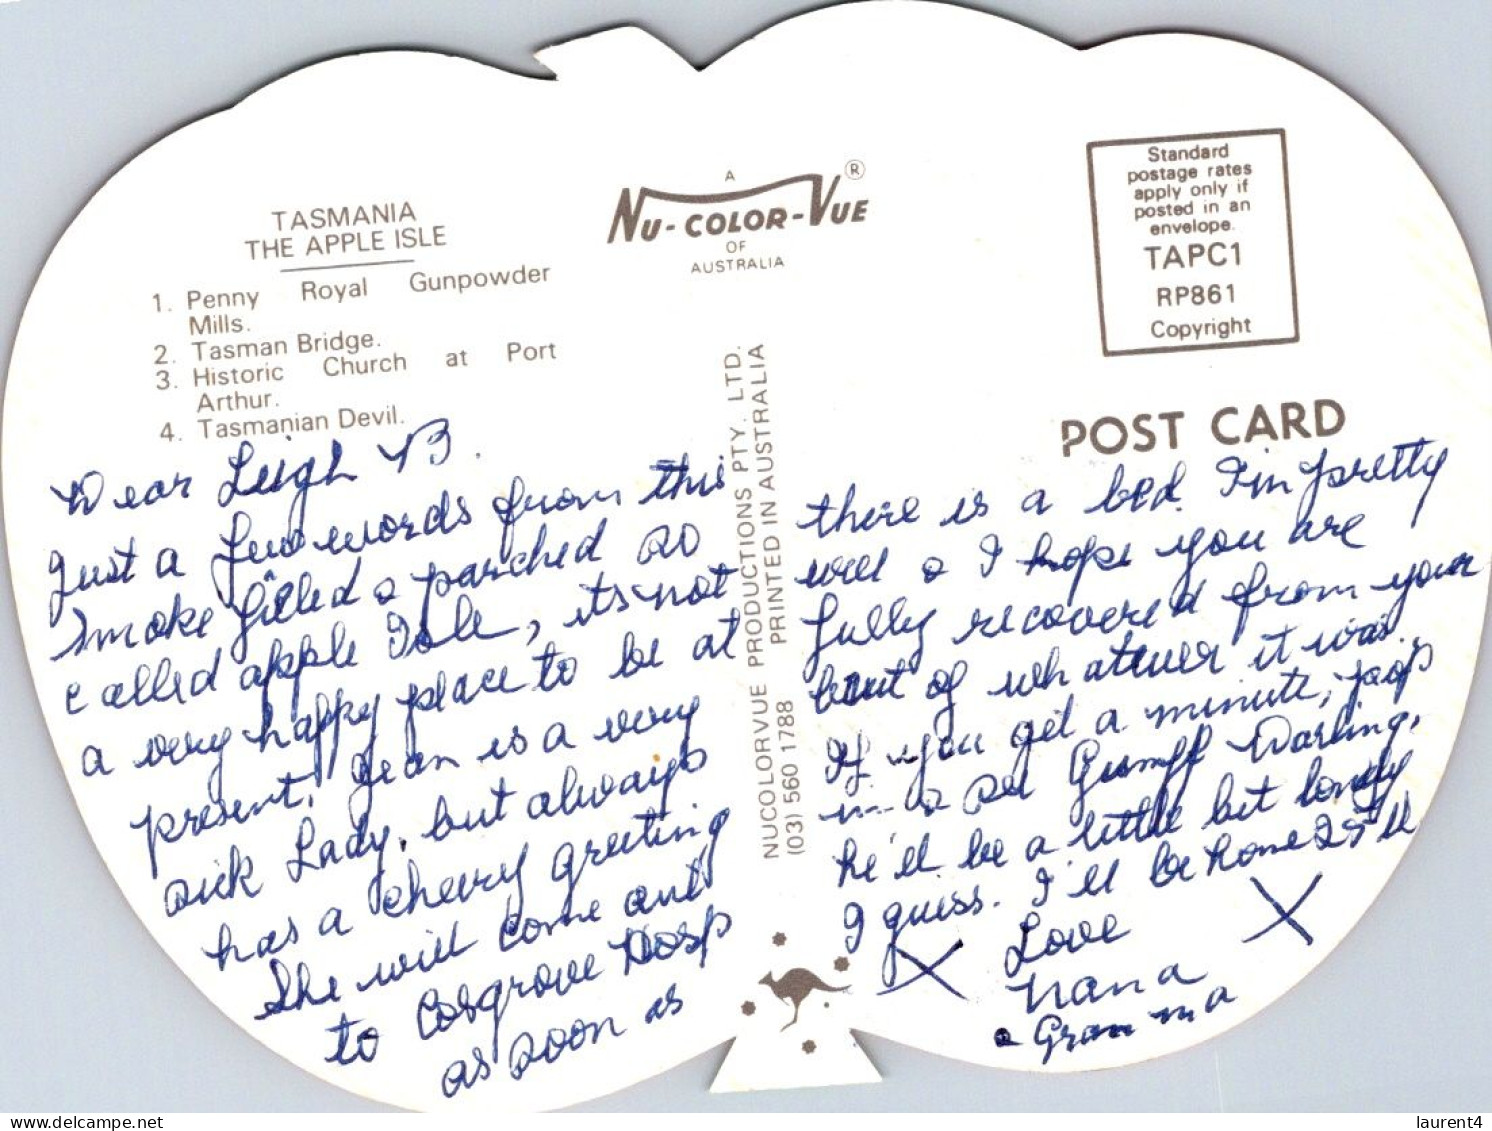 TASMANIA
THE APPLE ISLE
1. Penny Royal Gunpowder
Mills.
2. Tasman Bridge.
3. Historic Church at Port
Arthur.
4. Tasmanian Devil.
A
NU-COLOR-VUE ®
OF
AUSTRALIA
Standard
postage rates
apply only if
posted in an
envelope.
TAPC1
RP861
Copyright
POST CARD
NUCOLORVUE PRODUCTIONS PTY. LTD.
(03) 560 1788 PRINTED IN AUSTRALIA
Dear Leigh
Just a few words from this
smoke filled & parched so
called apple Isle, its not
a very happy place to be at
present, Jean is a very
sick Lady, but always
has a cheery greeting
She will come out
to Cosgrove Hosp
as soon as
there is a bed. I'm pretty
well & I hope you are
fully recovered from your
bout of whatever it was.
If you get a minute,
in & see Gumpf Darling,
he'll be a little bit lonely
I guess. I'll be home 25th
X Love X
Nana
& Gramma
laurent4